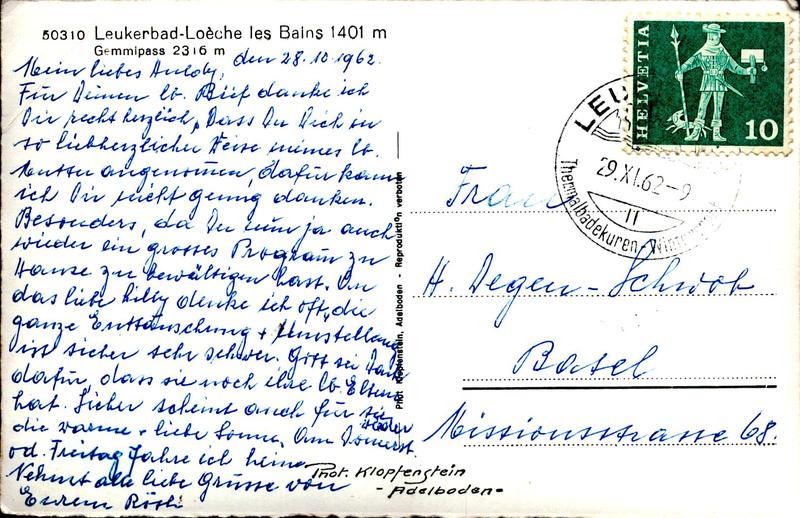 50310 Leukerbad-Loèche les Bains 1401 m
Gemmipass 2316 m
Mein liebes Huldy, den 28.10.1962.
Für Deinen lb. Brief danke ich
Dir recht herzlich, Dass Du Dich in
so liebherzlicher Weise meines lb.
Mutter angenommen, dafür kann
ich Dir nicht genug danken.
Besonders, da Du nun ja auch
wieder ein grosses Program zu
Hause zu bewältigen hast. An
das liebe Lilly denke ich oft, die
ganze Enttäuschung + Umstellung
ist sicher sehr schwer. Gott sei Dank
dafür, dass sie noch ihre lb. Eltern
hat. Sicher scheint auch für sie wieder
die warme + liebe Sonne. Am Donnerst.
od. Freitag fahre ich heim.
Nehmt alle liebe Grüsse von
Eurem Rösli
Phot. Klopfenstein
- Adelboden -
Phot. Klopfenstein, Adelboden - Reproduktion verboten
HELVETIA
10
LEU
29.XI.62-9
11
Thermalbadekuren - Win
Frau
H. Degen-Schwob
Basel
Missionsstrasse 68.